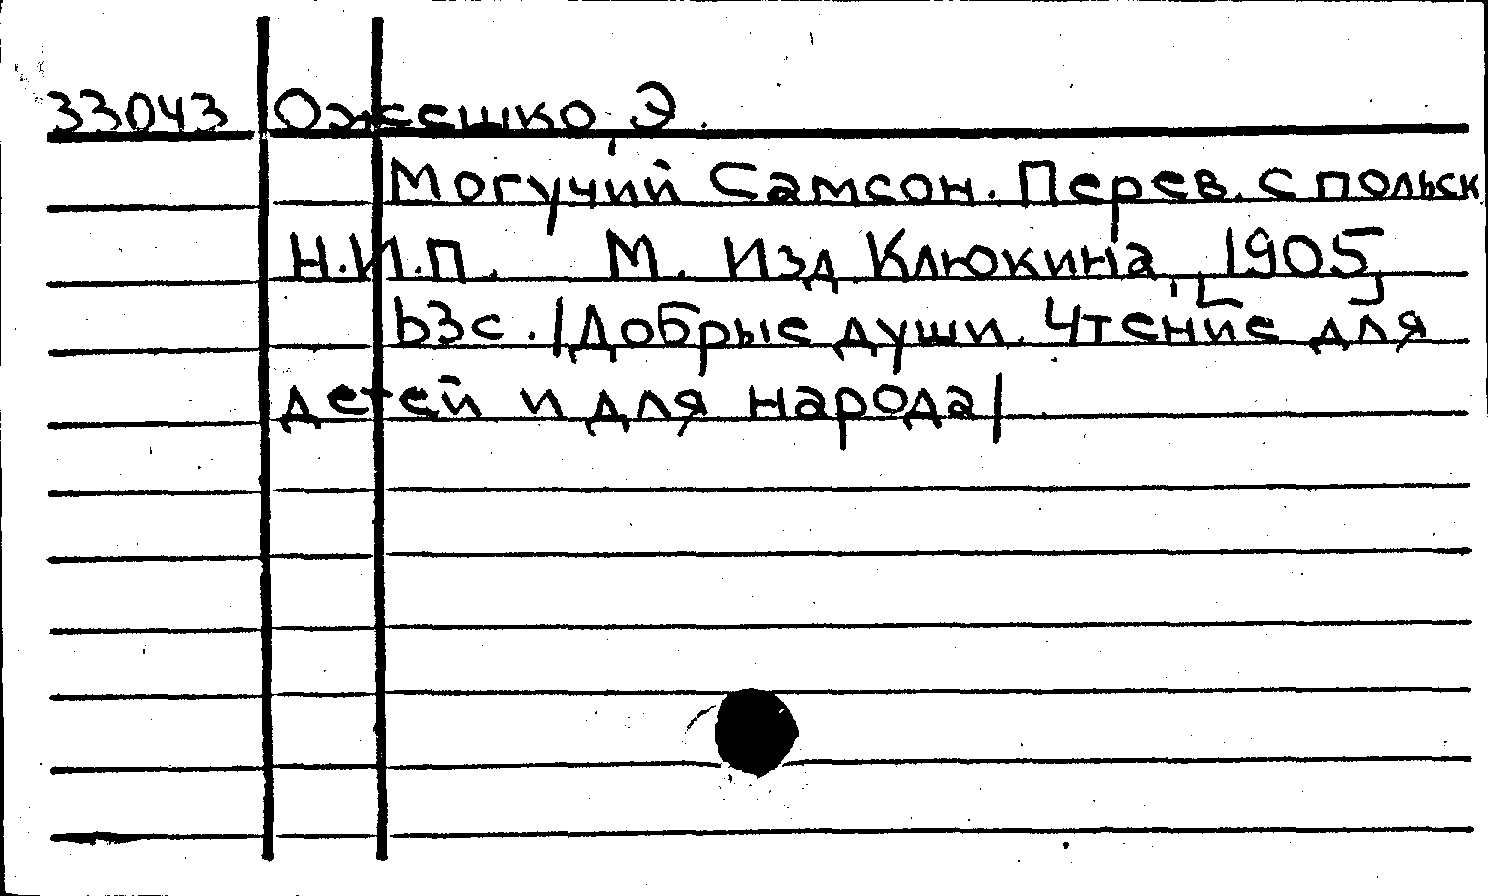 33043 Ожешко, Э.
Могучий Самсон. Перев. с польск
Н.И.П. М. Изд Клюкина, [1905]
63с. /Добрые души. Чтение для
детей и для народа/